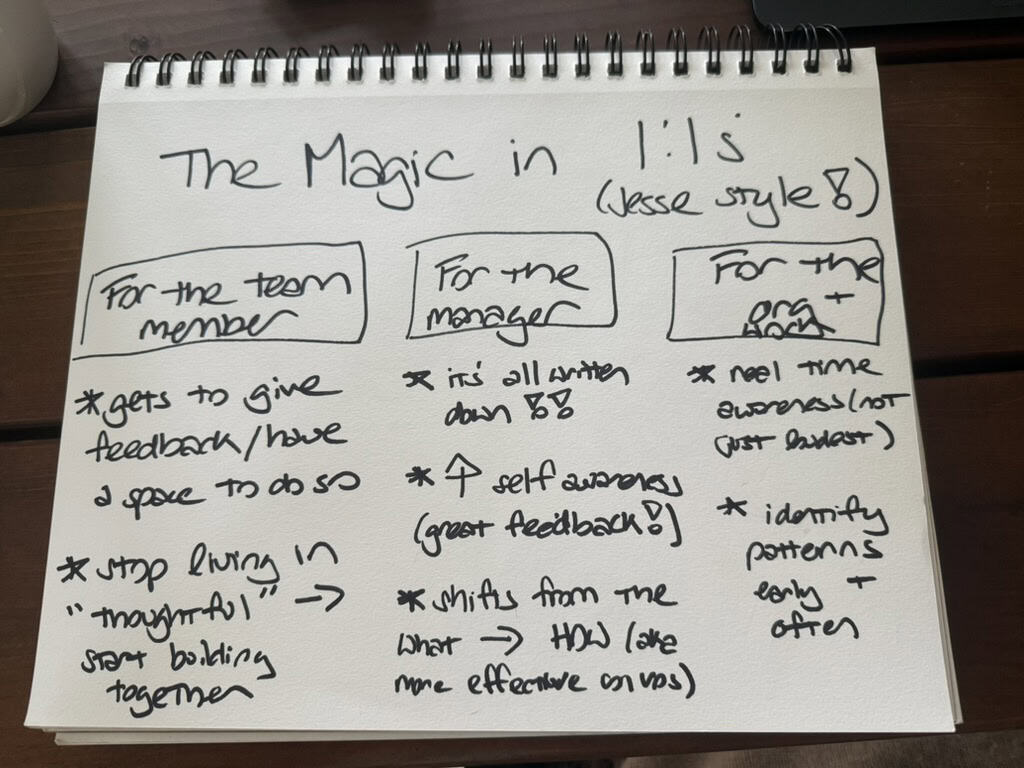 The Magic in 1:1s
(Jesse style!)
For the team
member
*gets to give
feedback/have
a space to do so
*stop living in
"thoughtful" →
start building
together
For the
manager
* it's all written
down !!
* ↑ self awareness
(great feedback!)
*shifts from the
what → HOW (aka
more effective convos)
For the
org +
* real time
awareness (not
just loudest)
* identify
patterns
early +
often